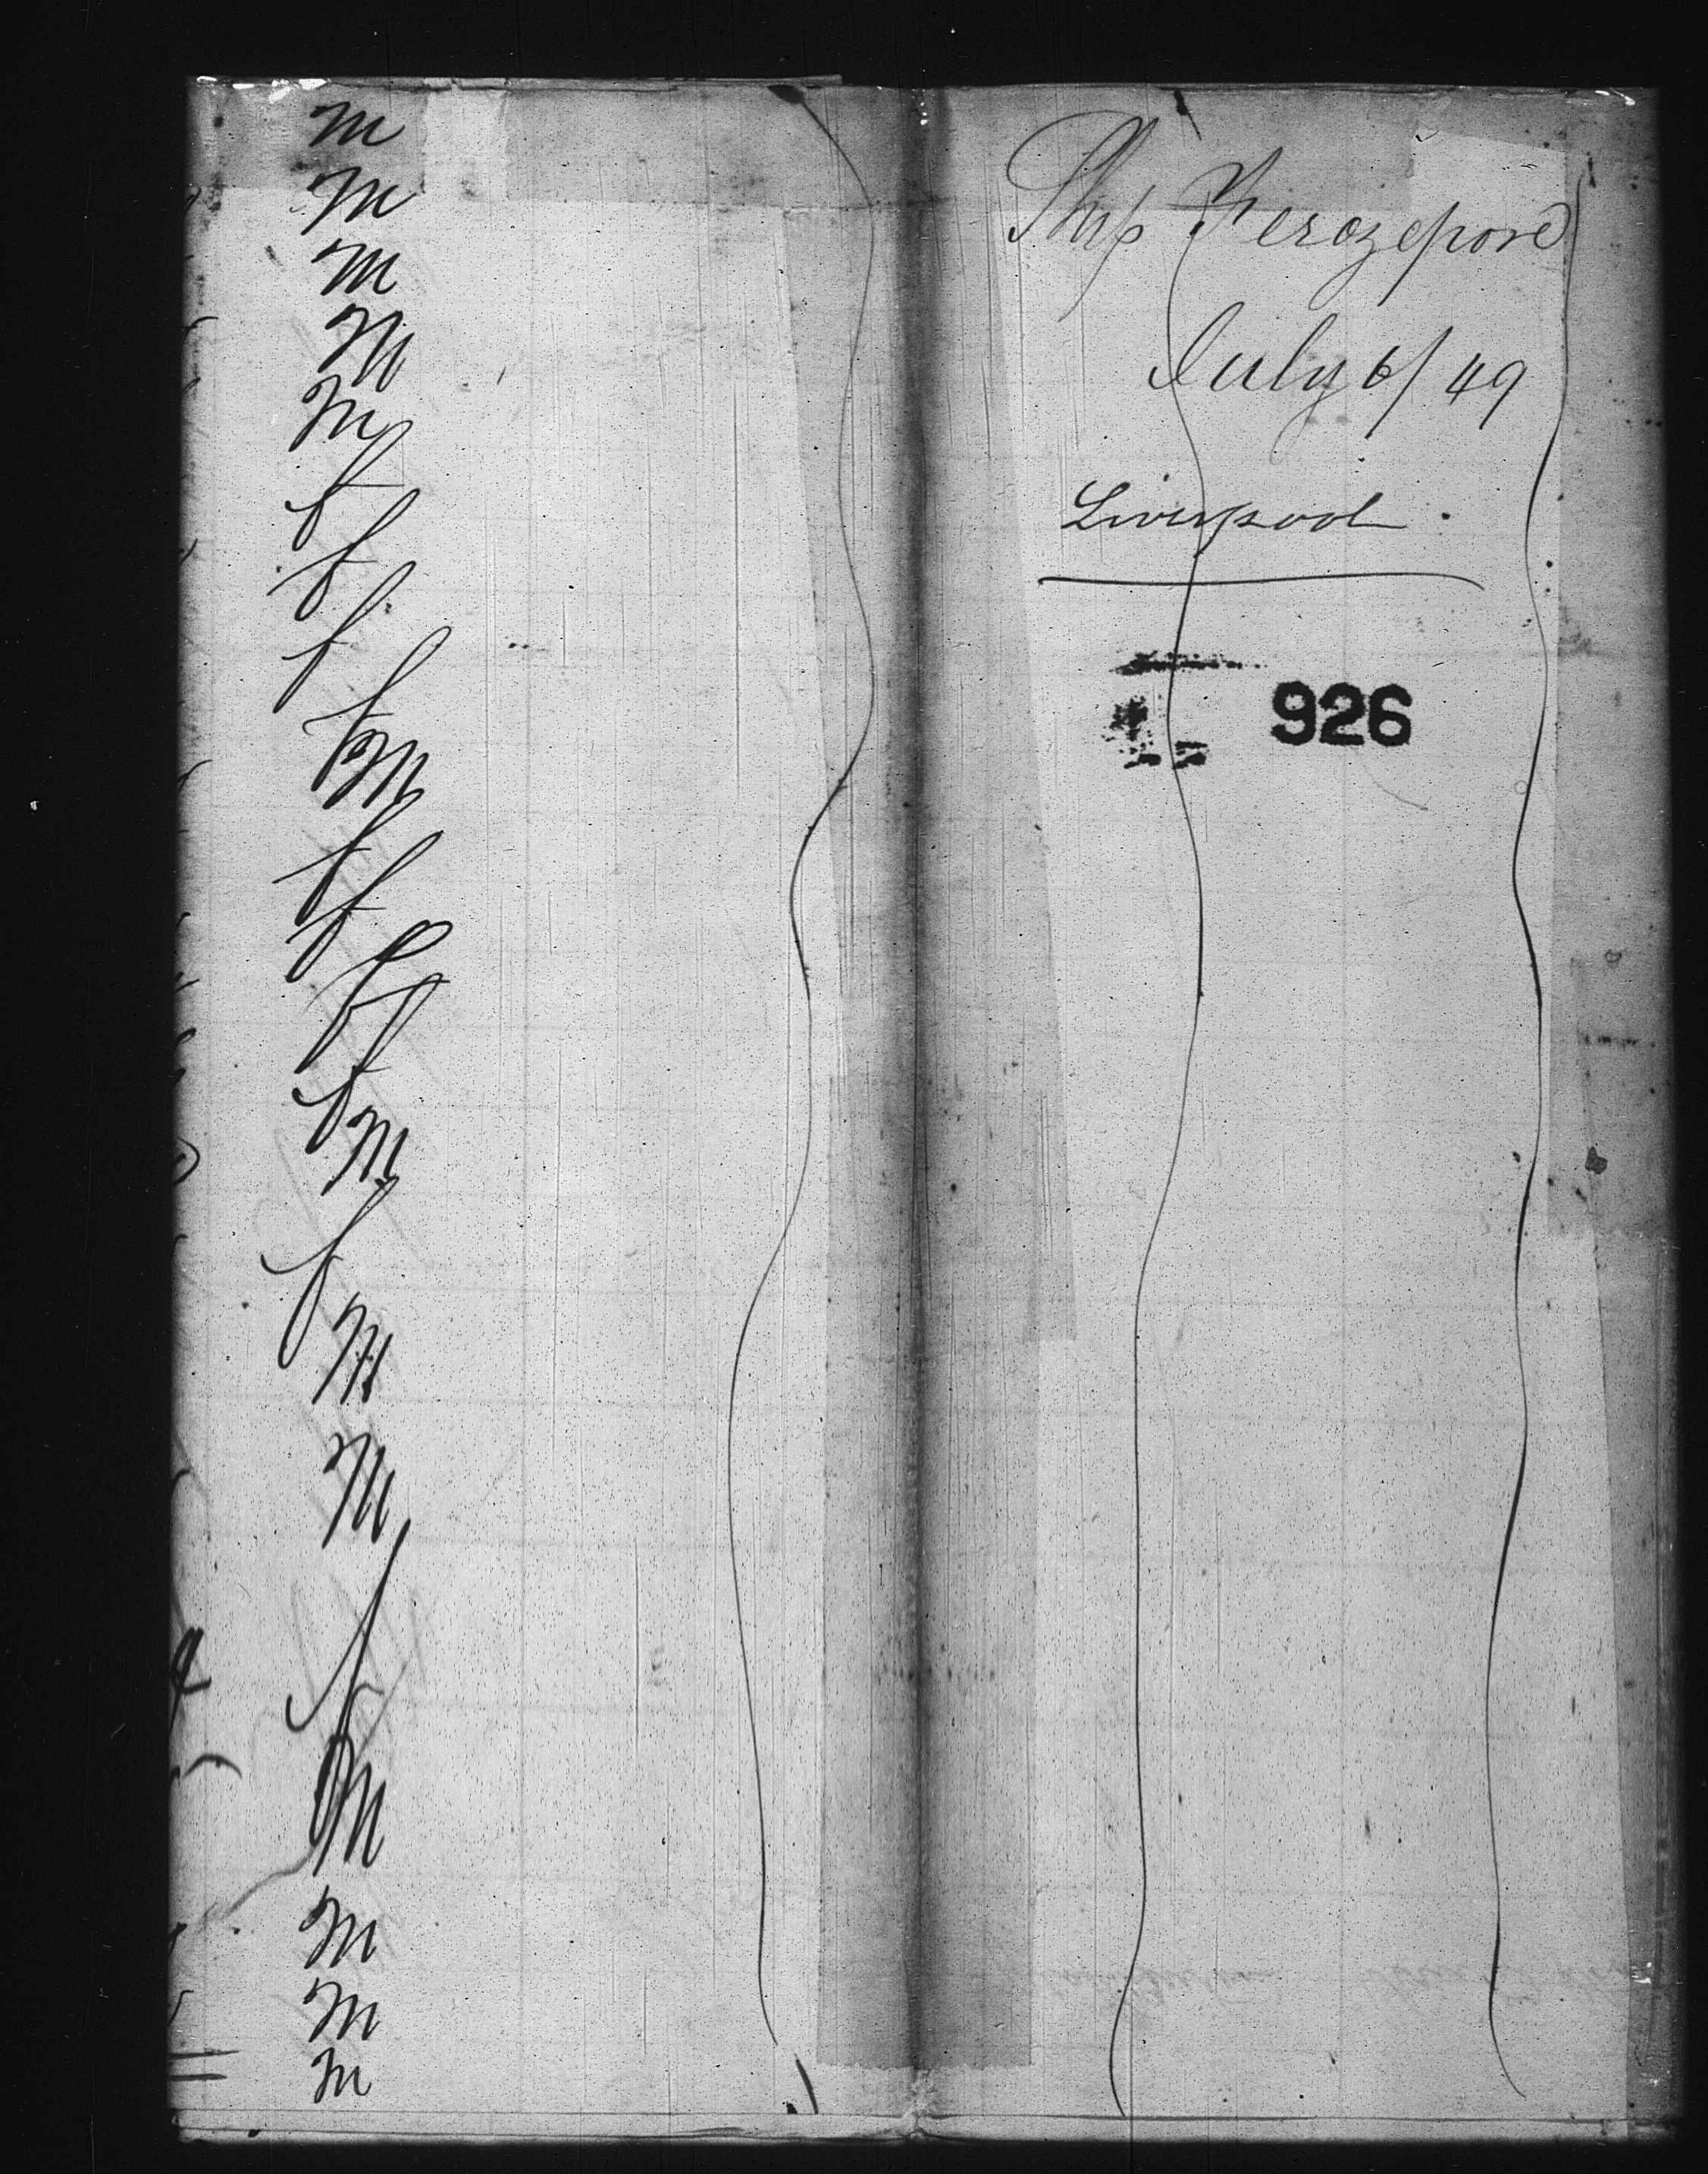 m
m
m
m
m
f
f
f
f
m
f
f
f
f
m
f
m
m
f
m
m
m
m
Ship Ferozepore
July 6/49
Liverpool.
926